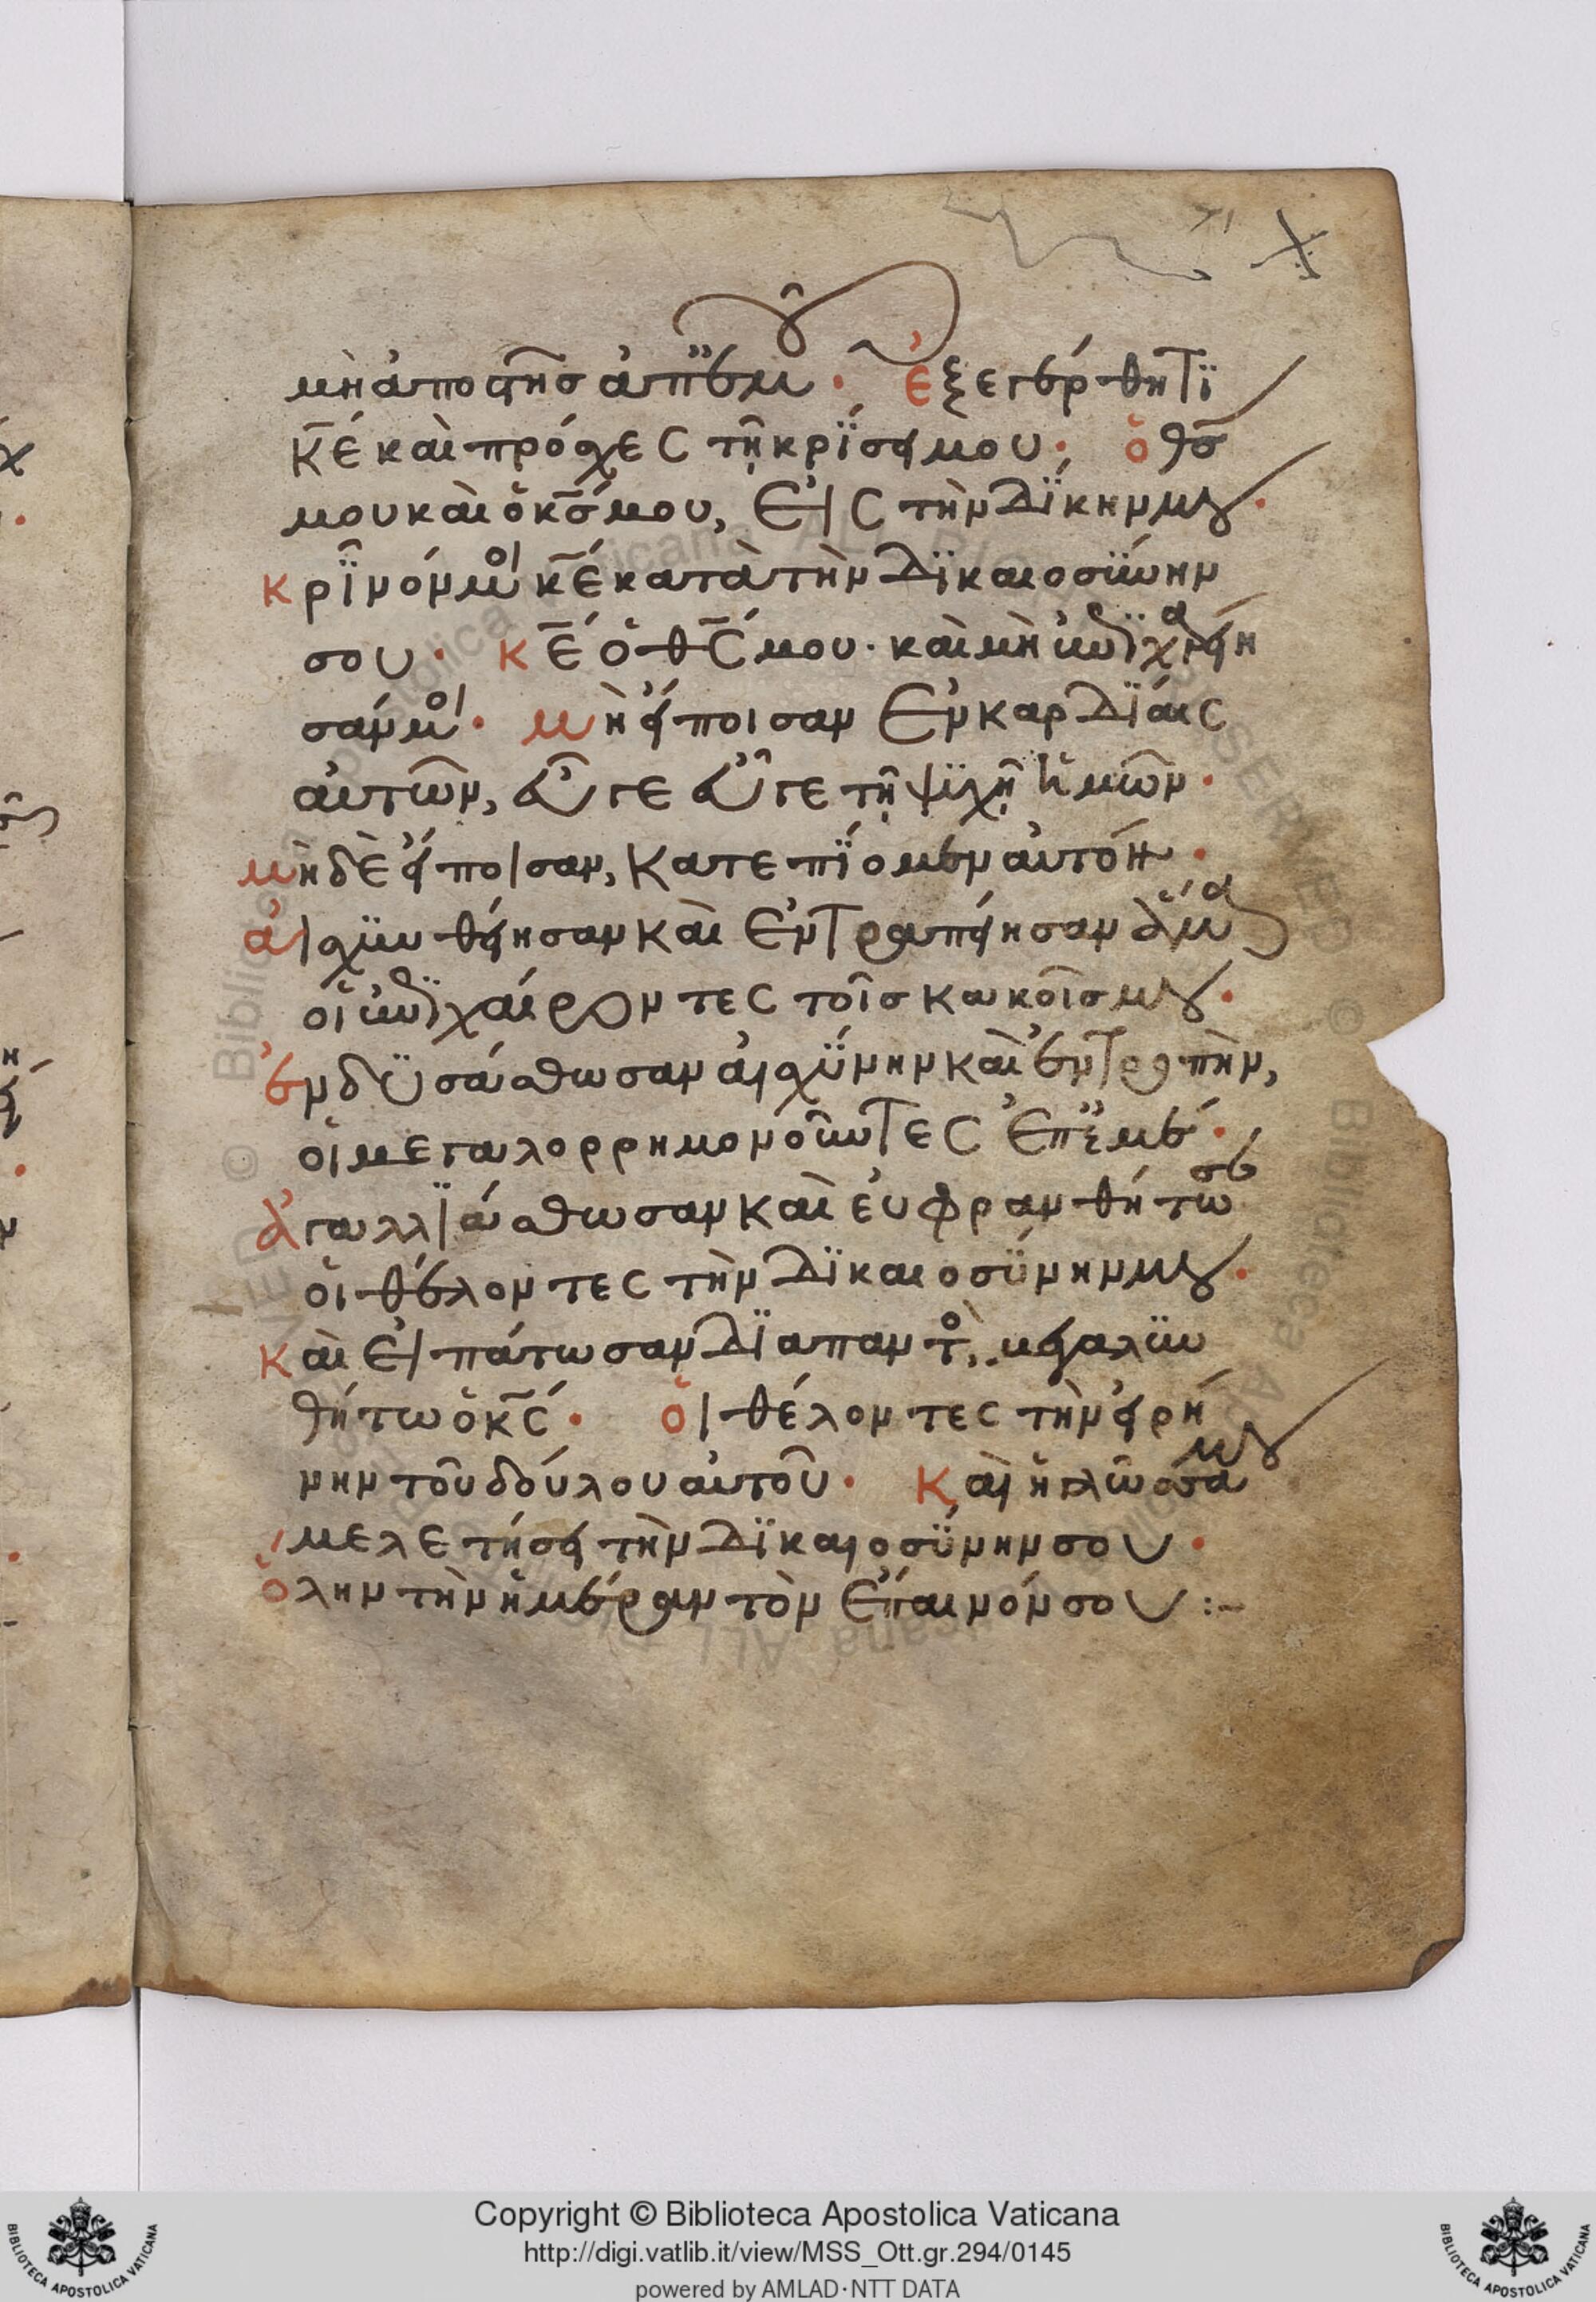 μὴ ἀποστῆς ἀπ' ἐμοῦ· ἐξεγέρθητι
κ̅ε̅ καὶ πρόσχες τῇ κρίσει μου· ὁ θ̅ς̅
μου καὶ ὁ κ̅ς̅ μου, εἰς τὴν δίκην μου·
κρῖνόν μοι κ̅ε̅ κατὰ τὴν δϊκαιοσύνην
σου· κ̅ε̅ ὁ θ̅ς̅ μου· καὶ μὴ ἐπιχαρείη
σάν μοι· μὴ εἴποισαν ἐν καρδΐαις
αὐτῶν, εὖγε εὖγε τῇ ψϋχῇ ἡμῶν·
μὴ δὲ εἴποισαν, κατεπΐομεν αὐτόν·
αἰσχυνθείησαν καὶ ἐντραπείησαν ἅμα
οἱ ἐπιχαίροντες τοῖς κακοῖς μου·
ἐνδϋσάσθωσαν αἰσχΰνην καὶ ἐντροπὴν,
οἱ μεγαλορρημονοῦντες ἐπ' ἐμέ·
ἀγαλλϊάσθωσαν καὶ εὐφρανθήτωσαν
οἱ θέλοντες τὴν δϊκαιοσΰνην μου·
καὶ εἰπάτωσαν δϊαπαντός, μεγαλυν
θήτω ὁ κ̅ς̅· οἱ θέλοντες τὴν εἰρή
νην τοῦ δούλου αὐτοῦ· καὶ ἡ γλῶσσά μου
μελετήσει τὴν δϊκαιοσΰνην σου·
ὅλην τὴν ἡμέραν τὸν ἔπαινόν σου :~
Copyright © Biblioteca Apostolica Vaticana
http://digi.vatlib.it/view/MSS_Ott.gr.294/0145
powered by AMLAD·NTT DATA
BIBLIOTECA APOSTOLICA VATICANA
BIBLIOTECA APOSTOLICA VATICANA